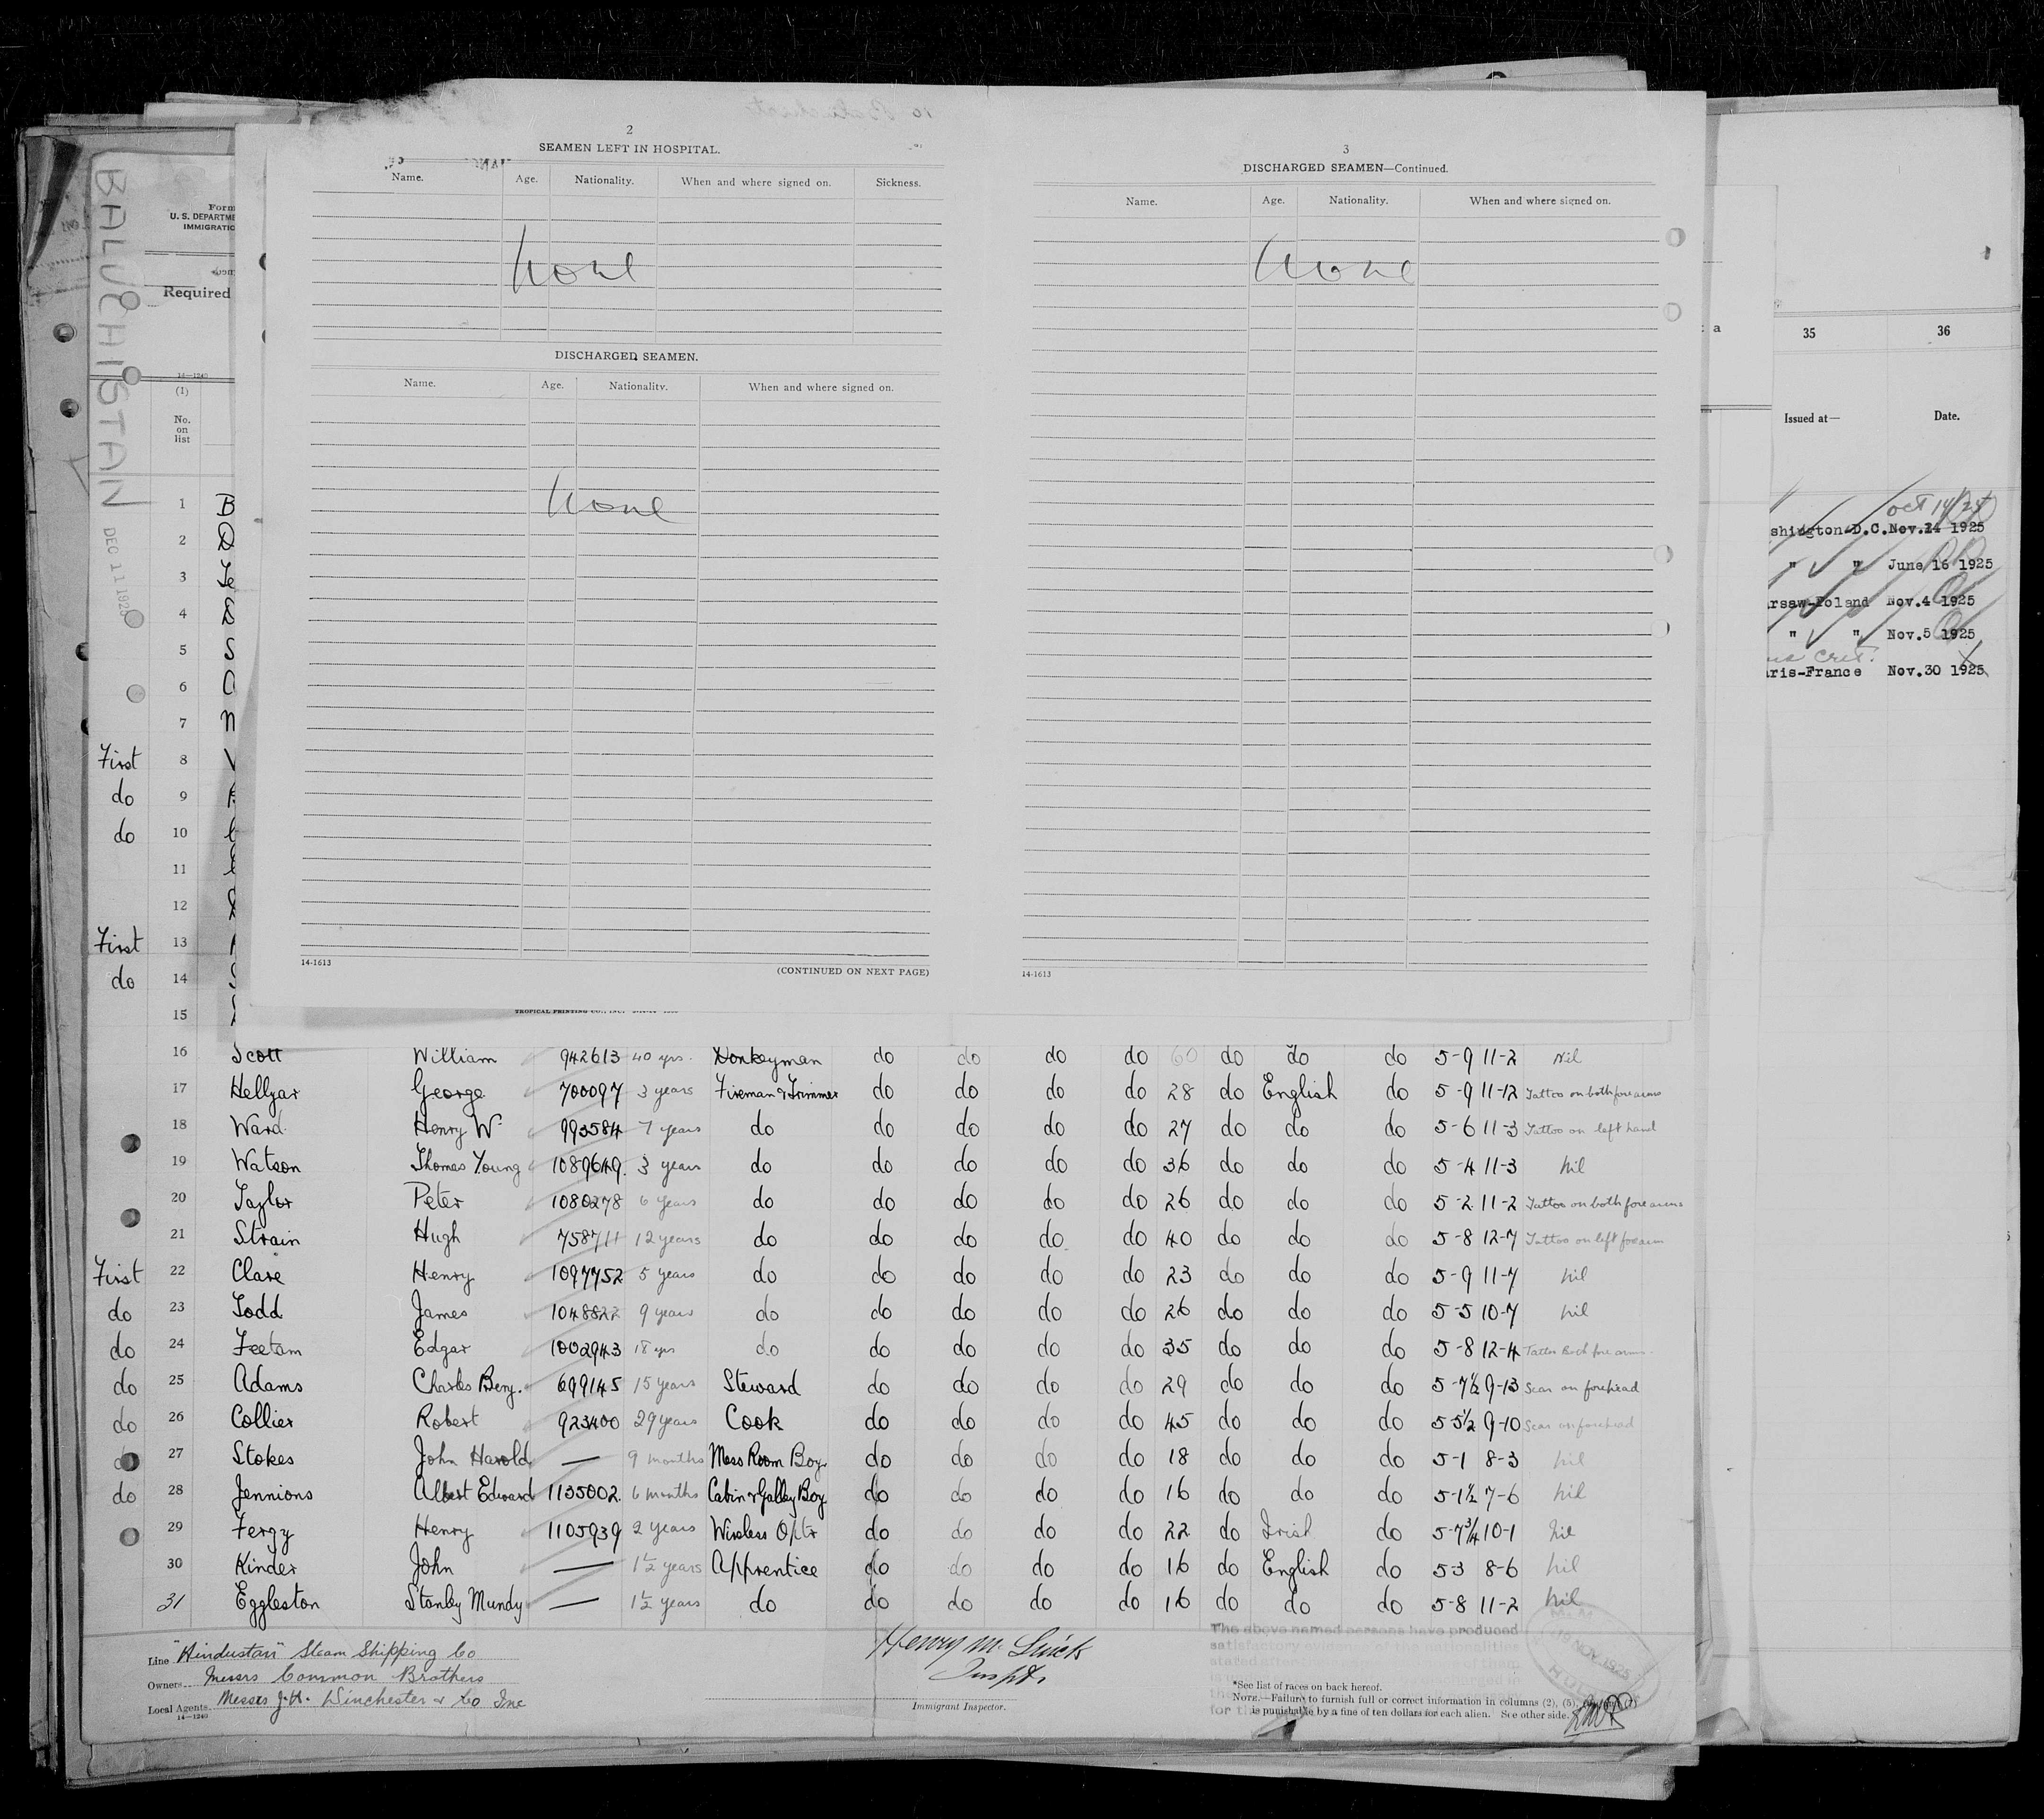 BALUCHISTAN
DEC 11 1925
Form
U. S. DEPARTME
IMMIGRATIO
Required
14-1240
(1)
No.
on
list
1 B
2 D
3 Te
4 B
5 S
6
7 M
First 8 V
do 9
do 10
11
12
First 13
do 14
15
2
SEAMEN LEFT IN HOSPITAL.
Name. Age. Nationality. When and where signed on. Sickness.
None
DISCHARGED SEAMEN.
Name. Age. Nationality. When and where signed on.
None
14-1613
(CONTINUED ON NEXT PAGE)
3
DISCHARGED SEAMEN—Continued.
Name. Age. Nationality. When and where signed on.
None
14-1613
a
35 36
Issued at— Date.
Oct 14/24
shington D.C. Nov.24 1925
" " June 16 1925
rsaw-Poland Nov.4 1925
" " Nov.5 1925
ris-France Nov.30 1925
TROPICAL PRINTING CO., INC.
16 Scott William 942613 40 yrs. Donkeyman do do do do 60 do do do 5-9 11-2 Nil
17 Hellyar George 700097 3 years Fireman & Trimmer do do do do 28 do English do 5-9 11-12 Tattoo on both forearms
18 Ward Henry W. 993584 7 years do do do do do 27 do do do 5-6 11-3 Tattoo on left hand
19 Watson Thomas Young 1089649. 3 years do do do do do 36 do do do 5-4 11-3 Nil
20 Taylor Peter 1080278 6 years do do do do do 26 do do do 5-2 11-2 Tattoo on both forearms
21 Strain Hugh 758711 12 years do do do do do 40 do do do 5-8 12-7 Tattoo on left forearm
First 22 Clare Henry 1097752 5 years do do do do do 23 do do do 5-9 11-7 nil
do 23 Todd James 1048822 9 years do do do do do 26 do do do 5-5 10-7 nil
do 24 Feetam Edgar 1002943 18 yrs do do do do do 35 do do do 5-8 12-4 Tattoo Both forearms.
do 25 Adams Charles Benj. 699145 15 years Steward do do do do 29 do do do 5-7½ 9-13 Scar on forehead
do 26 Collier Robert 923400 29 years Cook do do do do 45 do do do 5 5½ 9-10 Scar on forehead
do 27 Stokes John Harold — 9 months Mess Room Boy do do do do 18 do do do 5-1 8-3 nil
do 28 Jennions Albert Edward 1135002. 6 months Cabin & Galley Boy do do do do 16 do do do 5-1½ 7-6 nil
29 Fergy Henry 1105939 2 years Wireless Optr do do do do 22 do Irish do 5-7¾ 10-1 Nil
30 Kinder John — 1½ years Apprentice do do do do 16 do English do 5 3 8-6 nil
31 Eggleston Stanley Mundy — 1½ years do do do do do 16 do do do 5-8 11-2 nil
Line "Hindustan" Steam Shipping Co
Owners Messrs Common Brothers
Local Agents Messrs J.H. Winchester & Co Inc
14-1240
Henry M.
Inspt.
Immigrant Inspector.
The above named persons have produced
satisfactory
NOV 1925
*See list of races on back hereof.
NOTE.—Failure to furnish full or correct information in columns (2), (5),
is punishable by a fine of ten dollars for each alien. See other side.